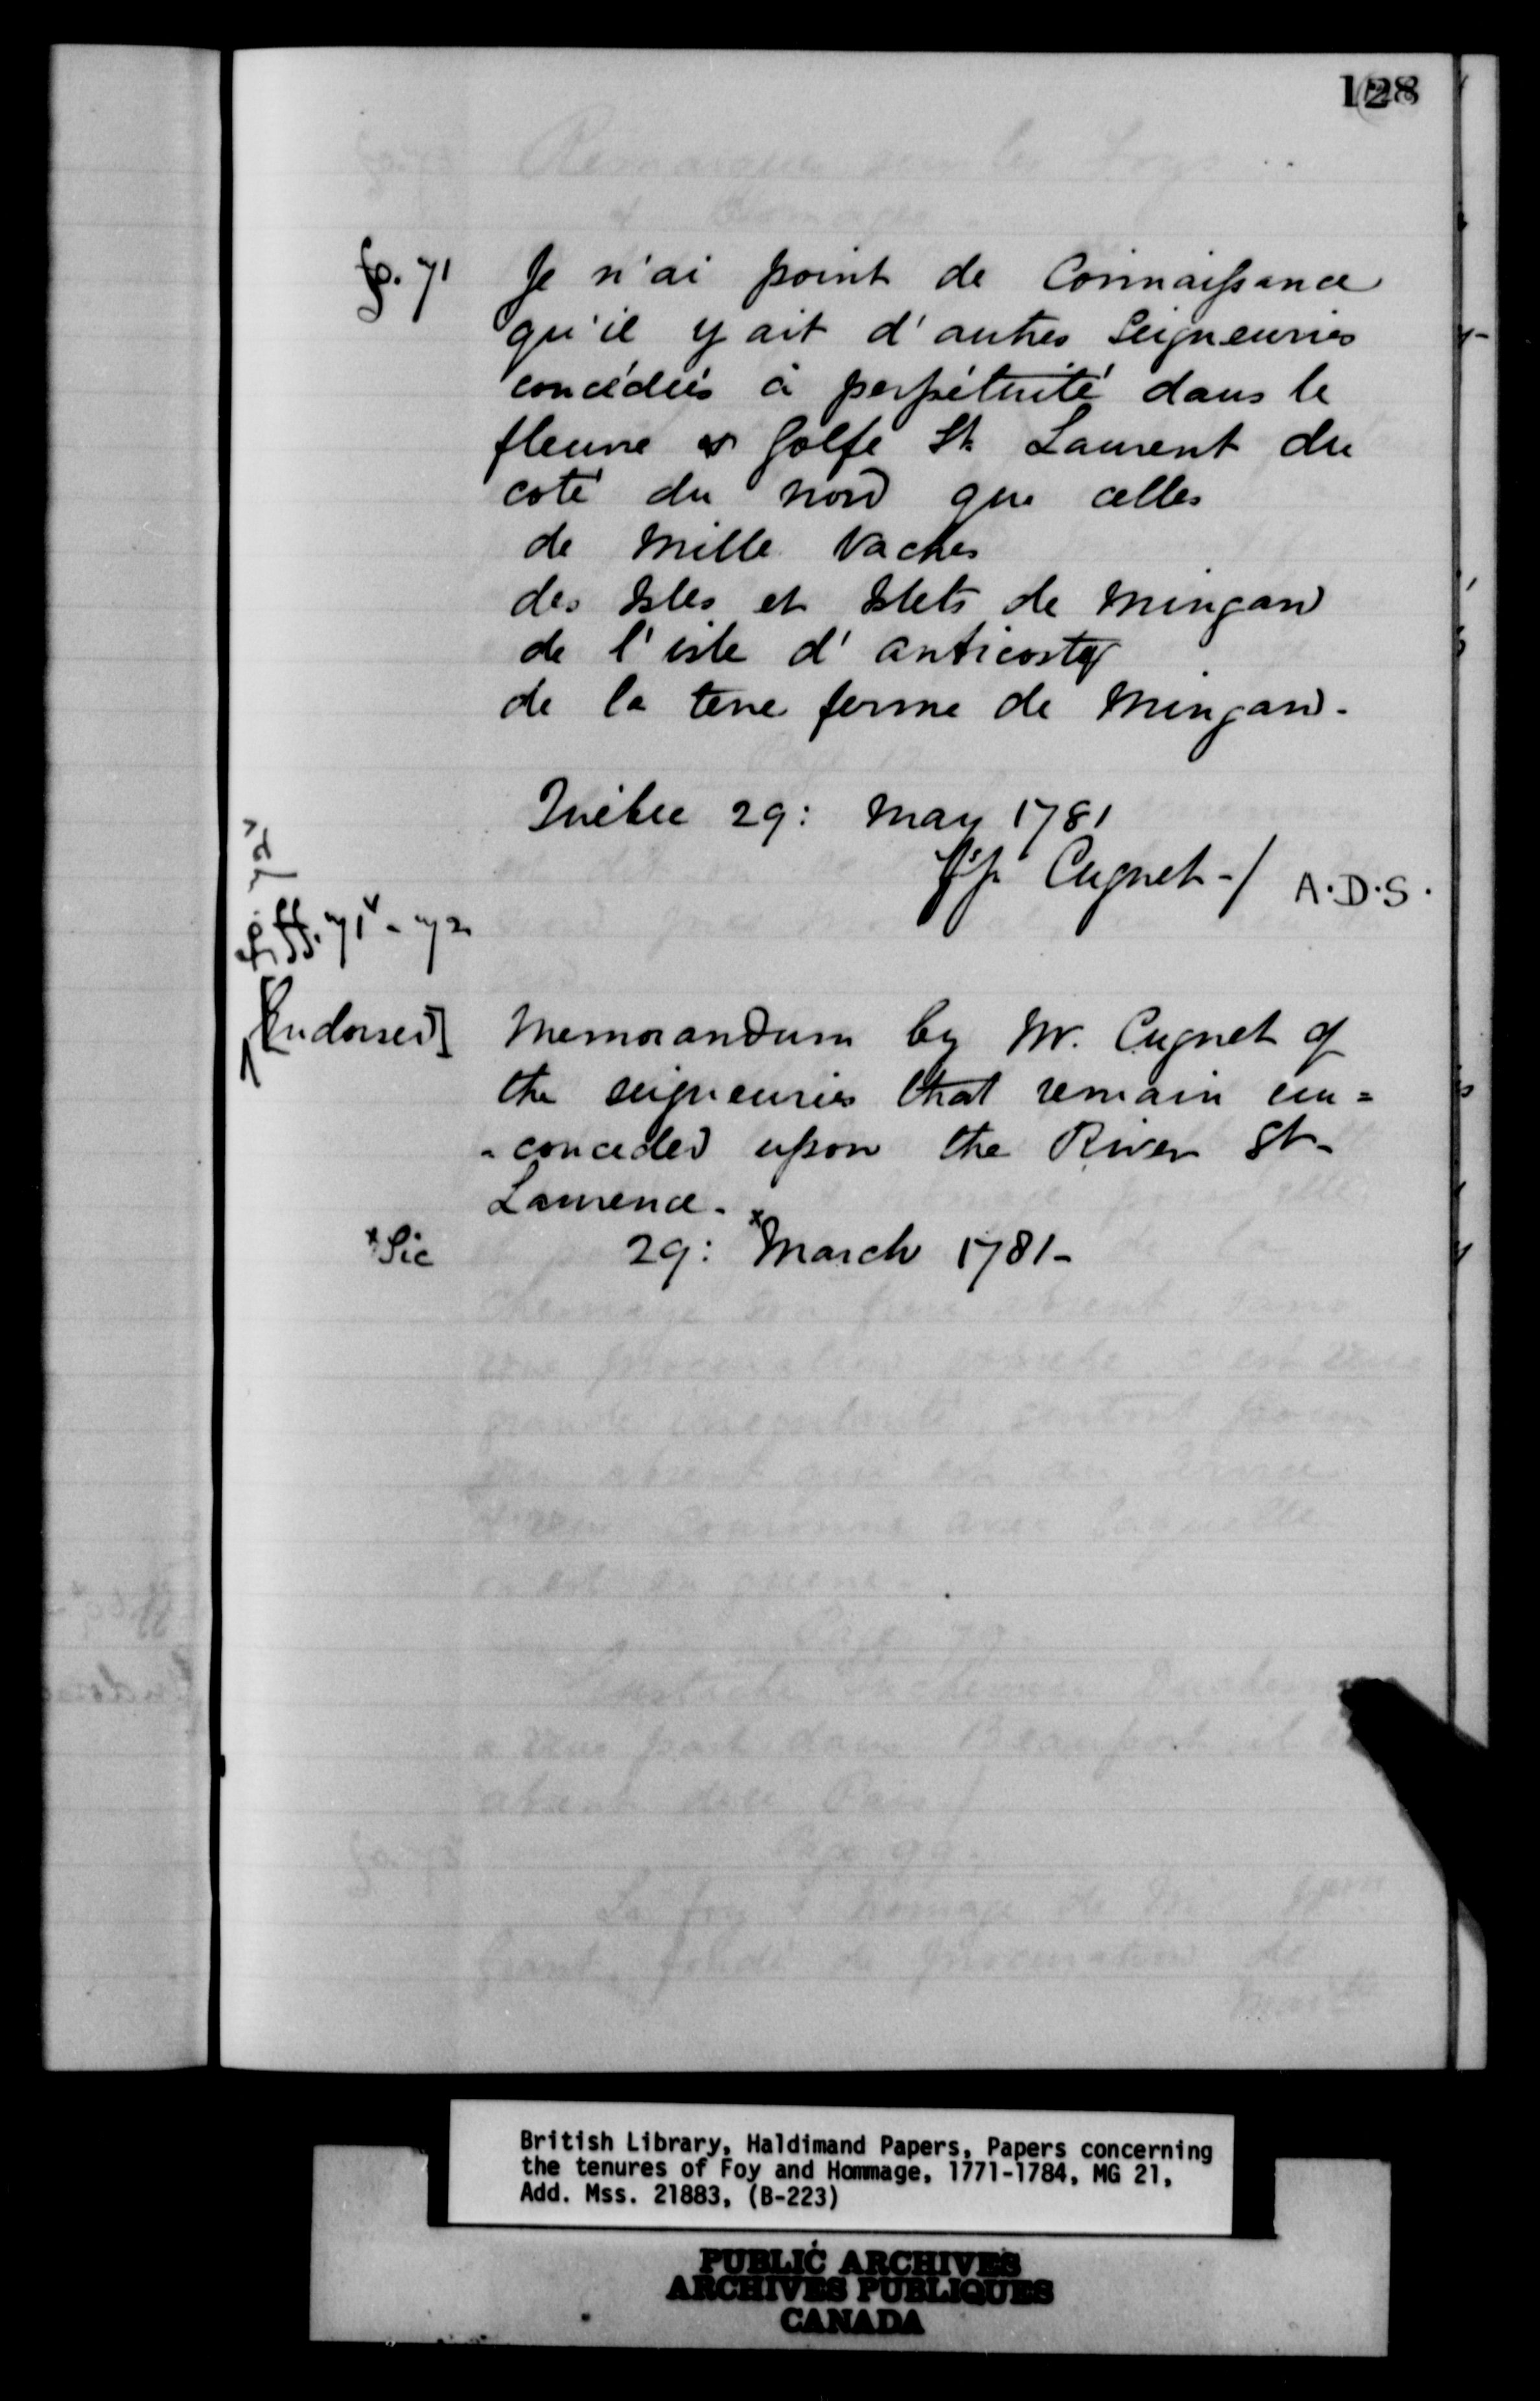 128
fo. 71 Je n'ai point de Connaissance
qu'il y ait d'autres Seigneuries
concédées à perpétuité dans le
fleuve & Golfe St. Laurent du
coté du nord que celles
de Mille Vaches
des Isles et Islets de Mingan
de l'isle d'anticosty
de la terre ferme de Mingan.
Québec 29: May 1781
fjs Cugnet -/ A.D.S.
ff. 71v - 72
fo. 72v
[Endorsed] Memorandum by Mr. Cugnet of
the seigneuries that remain un=
=conceded upon the River St.
Laurence.
*Sic 29: *March 1781-
British Library, Haldimand Papers, Papers concerning
the tenures of Foy and Hommage, 1771-1784, MG 21,
Add. Mss. 21883, (B-223)
PUBLIC ARCHIVES
ARCHIVES PUBLIQUES
CANADA